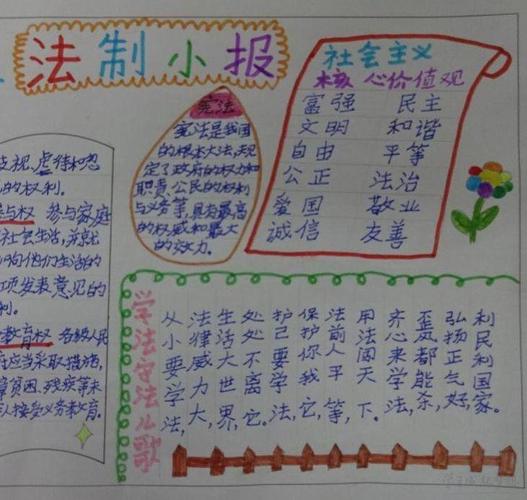 法制小报
视、虐待和忽
的权利。
与权 参与家庭
社会生活,并就
他们生活的
项发表意见的
利。
教育权 各级人民
应当采取措施,
贫困、残疾等未
人接受义务教育。
宪法
宪法是我国
的根本大法,规
定了政府的权力和
职责,公民的权利
与义务等,具有最高
的权威和最大
的效力。
社会主义
核心价值观
富强 民主
文明 和谐
自由 平等
公正 法治
爱国 敬业
诚信 友善
学法守法儿歌
从小要学法,
法律威力大,
生活大世界,
处处不离它。
护己要学法,
保护你我它,
法前人平等,
用法闯天下。
齐心来学法,
歪都能杀,
弘扬正气好,
利民利国家。